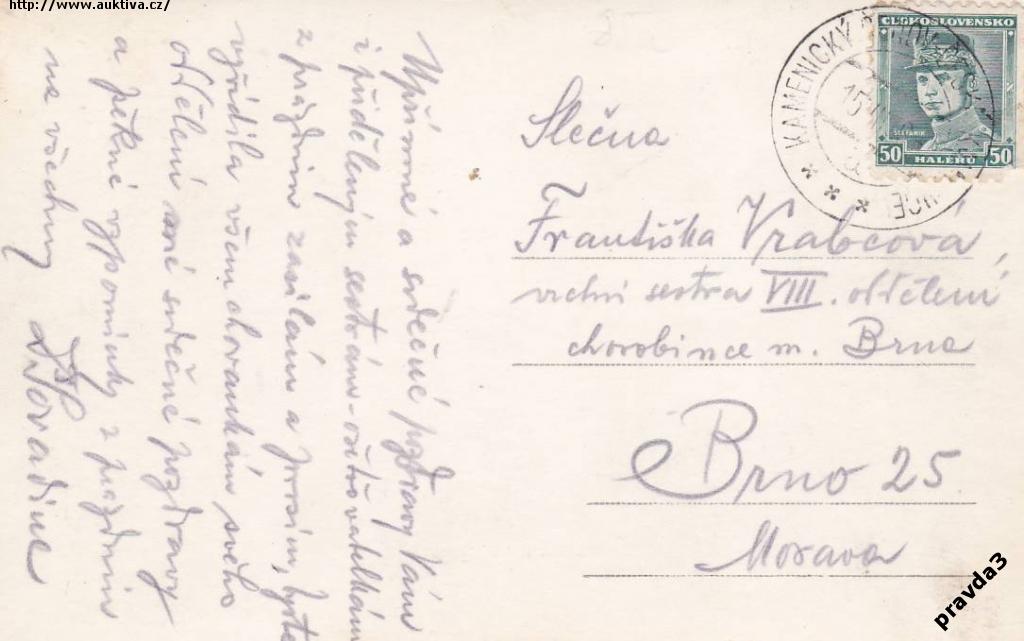 http://www.auktiva.cz/
Upřímné a srdečné pozdravy Vám
i přiděleným sestrám-ošetřovatelkám
z prázdnin zasílám a prosím, byste
vyřídila všem chovankám svého
oddělení mé srdečné pozdravy
a pěkné vzpomínky z prázdnin
na všechny
ČESKOSLOVENSKO
ŠTEFÁNIK
50 HALÉŘŮ 50
KAMENICKÝ
Slečna
Františka Vrabcová,
vrchní sestra VIII. oddělení
chorobince m. Brna
Brno 25.
Morava
pravda3